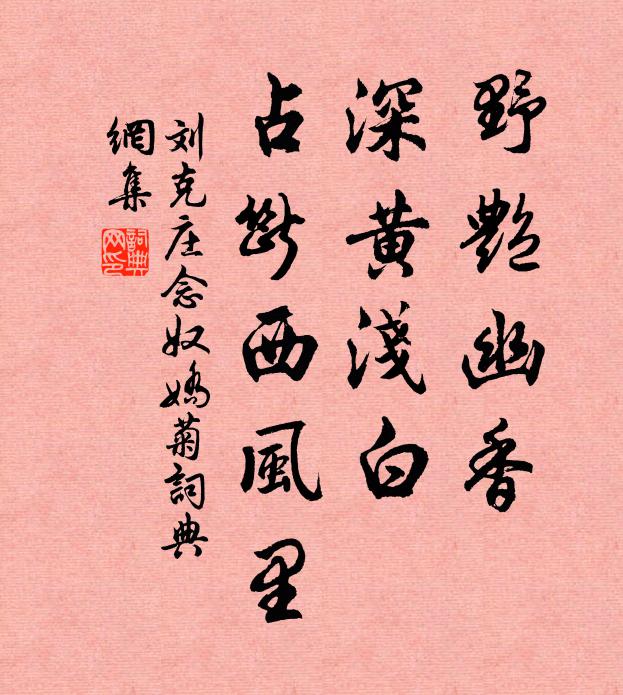 野艷幽香
深黄淺白
占斷西風里
刘克庄念奴嬌菊詞典
網集
詞典
网印